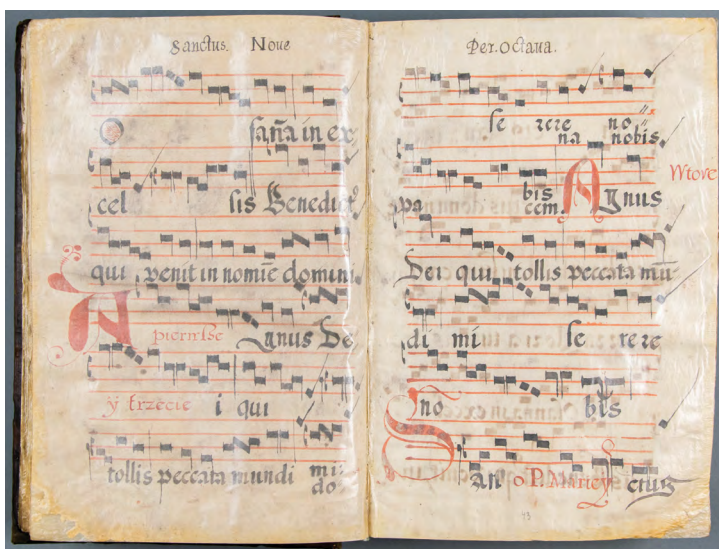 Sanctus. Noue
Osaña in ex
cel sis Benedict9
qui venit in nomiē domini
A pierwſse gnus De
y trzecie i qui
tollis peccata mundi mi
do
Per. Octaua.
ſe rere no
na nobis
Wtore
pa bis Agnus
cem.
Dei qui tollis peccata mū
di mi ſe re re
no bis
San o P. Mariey ctus
43